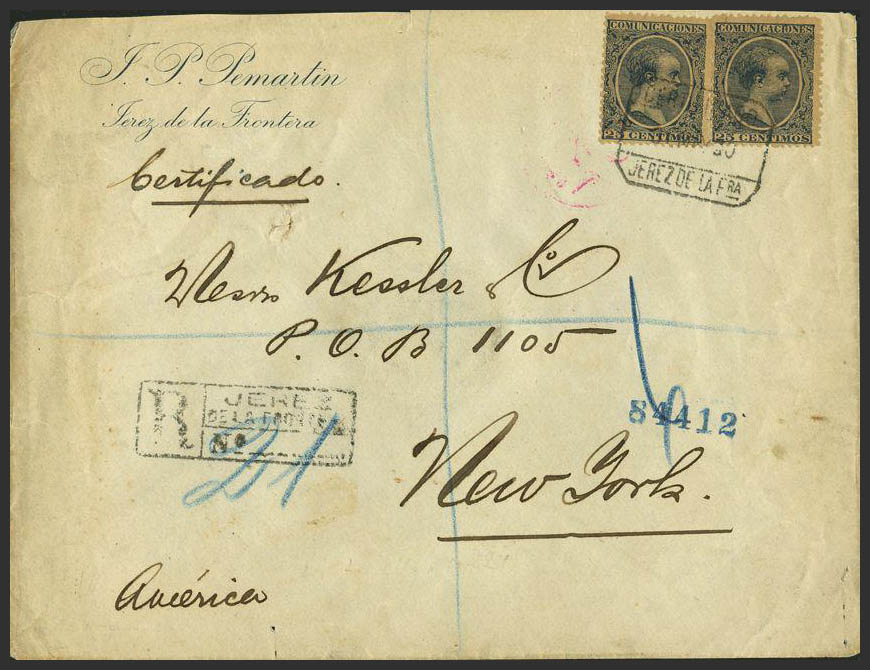 J. P. Pemartin
Jerez de la Frontera
COMUNICACIONES COMUNICACIONES
25 CENTIMOS 25 CENTIMOS
JEREZ DE LA FRA
Certificado.
Messrs Kessler & Co
P. O. B 1105
R JEREZ
DE LA FRONTERA
Nº 21
84412
New York.
América